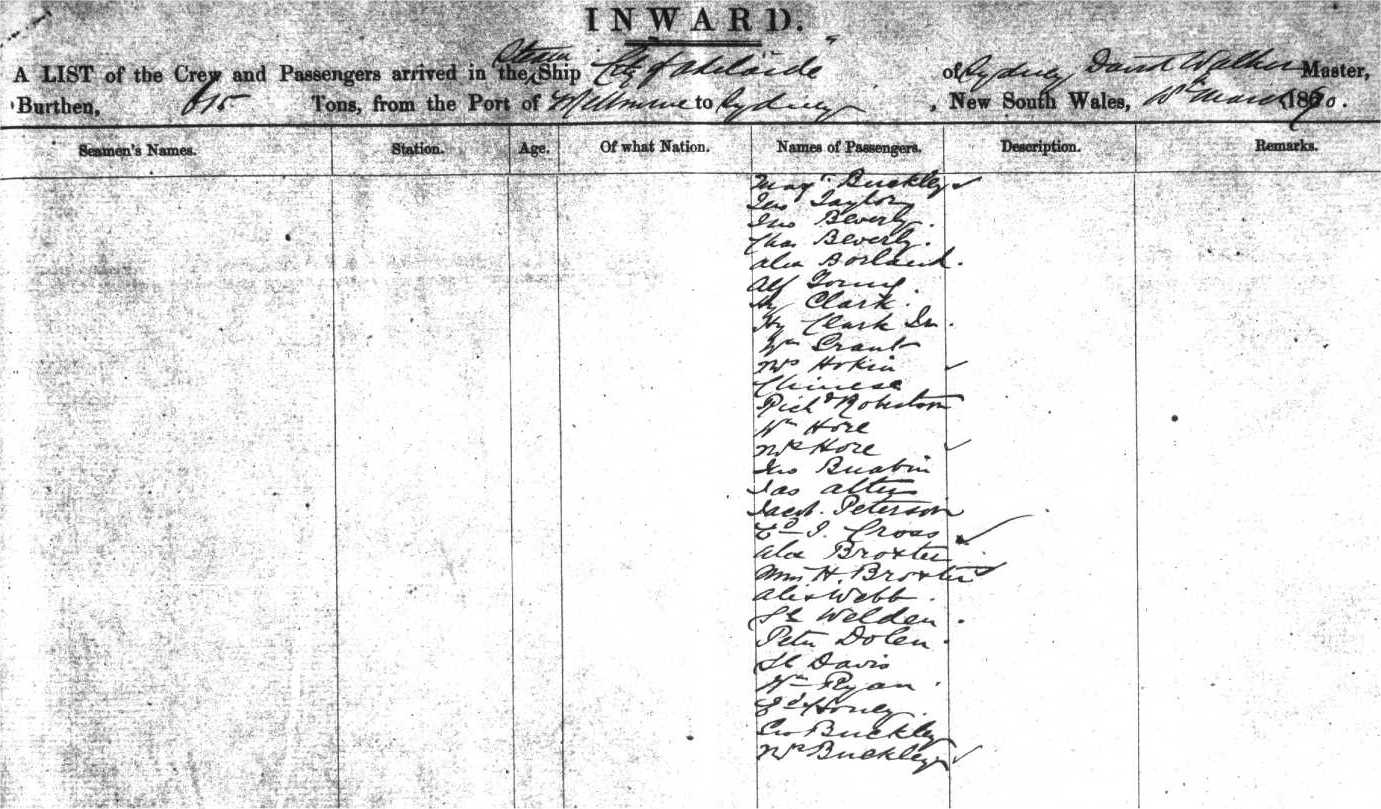 INWARD.
A LIST of the Crew and Passengers arrived in the Steam Ship "City of Adelaide" of Sydney David Walker Master,
Burthen, 615 Tons, from the Port of Melbourne to Sydney, New South Wales, March 1870.
Seamen's Names. Station. Age. Of what Nation. Names of Passengers. Description. Remarks.
Buckley
Taylor
Jno Beverly.
Chas Beverly.
Alex Borland.
Alf Young.
Hy Clark.
Hy Clark Jn.
Wm Grant
Mrs Hokin
Chinese
Richd Robertson
Wm Hore
Mrs Hore
Jno
Jas
Jacob Peterson
J. Cross
Alex Broxter
H. Broxter
Alex Webb.
Welden.
Peter Dolen.
Davis
Wm Ryan.
Ed Honey.
Geo Buckley
Mrs Buckley